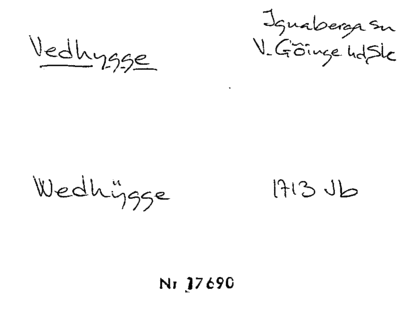 Vedhygge
Ignaberga sn
V. Göinge hd Sk
Wedhÿgge
1713 Jb
Nr 17690